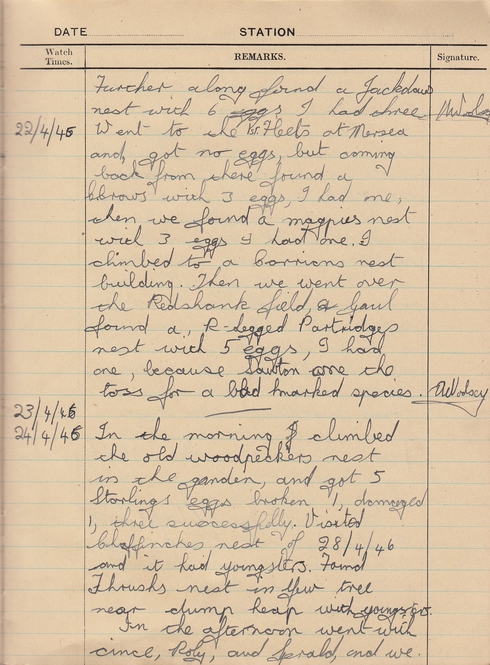 DATE STATION
Watch Times. REMARKS. Signature.
Further along found a Jackdaws
nest with 6 eggs I had three
22/4/45 Went to the Fleets at Mersea
and, got no eggs, but coming
back from there found a
with 3 eggs, I had one,
then we found a magpies nest
with 3 eggs I had one. I
climbed to a nest
building. Then we went over
the Redshank field, & Gaul
found a, R-legged Partridges
nest with 5 eggs, I had
one, because the
toss for a bad marked species.
23/4/45
24/4/45 In the morning I climbed
the old woodpeckers nest
in the garden, and got 5
Starlings eggs broken 1, damaged
1, three successfully. Visited
nest of 28/4/46
and it had youngsters. Found
Thrushs nest in Yew tree
near dump heap with
In the afternoon went with
Roly, and Gerald, and we.